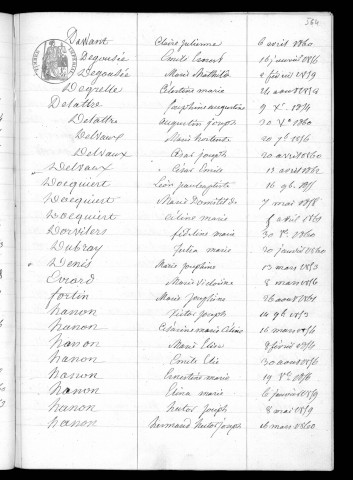 564
Davant Claire Julienne 6 avril 1860
Degousée Emile Ernest 16 janvier 1856
Degousée Marie Mathilde 2 février 1859
Degrelle Célestine marie 24 aout 1854
Delattre Joséphine augustine 9 Xbre 1854
Delattre Augustin joseph 30 Xbre 1860
Delvaux Marie hortense 20 7bre 1856
Delvaux César joseph 20 avril 1860
Delvaux César Emile 13 avril 1862
Docquiert Léon 16 9bre 1851
Docquiert Marie Domitilde 7 mai 1858
Docquiert Céline marie 5 avril 1861
Dorvillers marie 30 1860
Dubray Julia marie 20 janvier 1860
Denis Marie Joséphine 13 mars 1853
Evrard Marie Victorine 8 mars 1856
fortin Marie Joséphine 26 aout 1861
hanon Victor Joseph 14 9bre 1853
hanon marie 16 mars 1856
hanon Marie Elise 8 février 1856
hanon Emile Elie 30 aout 1856
hanon Ernestine marie 19 Xbre 1856
hanon Elina marie 6 janvier 1859
hanon hector Joseph 8 mai 1859
hanon hector joseph 16 mars 1860